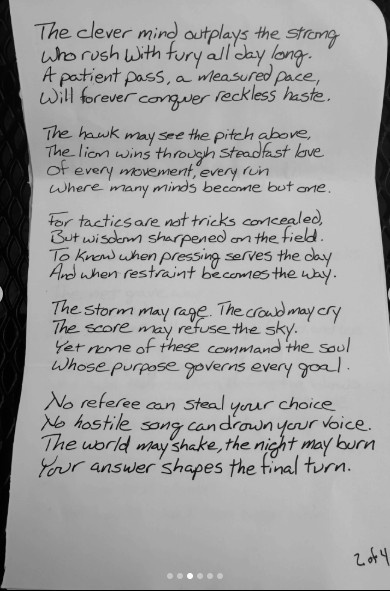 The clever mind outplays the strong
Who rush with fury all day long.
A patient pass, a measured pace,
Will forever conquer reckless haste.
The hawk may see the pitch above,
The lion wins through steadfast love
Of every movement, every run
Where many minds become but one.
For tactics are not tricks concealed,
But wisdom sharpened on the field.
To know when pressing serves the day
And when restraint becomes the way.
The storm may rage. The crowd may cry
The score may refuse the sky.
Yet none of these command the soul
Whose purpose governs every goal.
No referee can steal your choice
No hostile song can drown your voice.
The world may shake, the night may burn
Your answer shapes the final turn.
2 of 4